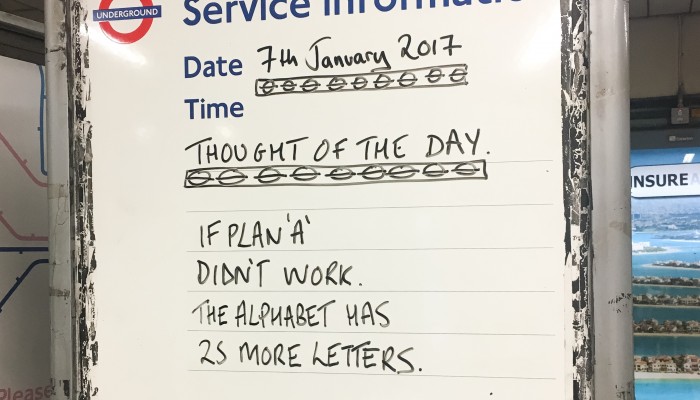 UNDERGROUND
Service Informatio
Date 7th January 2017
Time
THOUGHT OF THE DAY.
IF PLAN 'A'
DIDN'T WORK.
THE ALPHABET HAS
25 MORE LETTERS.
INSURE
Please